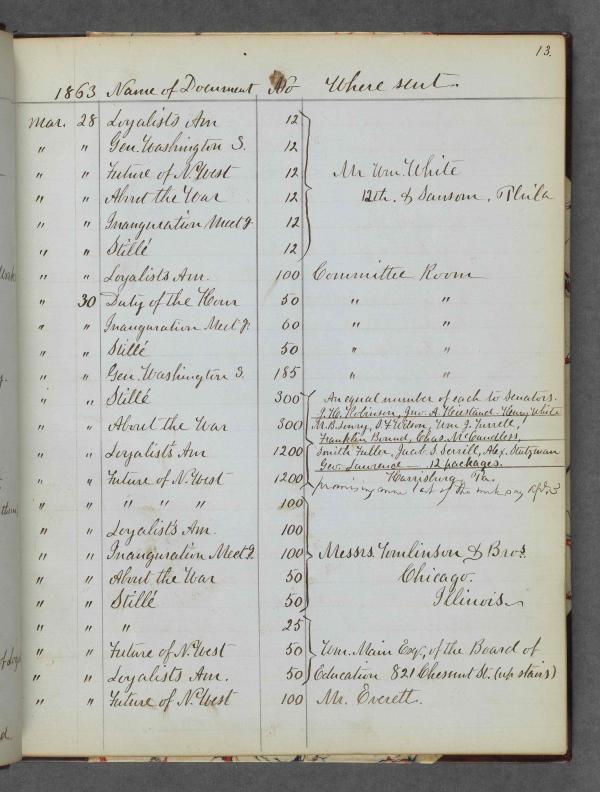 13.
1863 Name of Document No Where sent.
Mar. 28 Loyalists Am 12
" " Gen. Washington S. 12
" " Future of N.West 12 Mr Wm. White
" " About the War 12 12th. & Sansom, Phila
" " Inauguration Meetg. 12
" " Stillé 12
" " Loyalists Am. 100 Committee Room
" 30 Duty of the Hour 50 " "
" " Inauguration Meetg. 60 " "
" " Stillé 50 " "
" " Gen. Washington S. 185 " "
" " Stillé 300 An equal number of each to Senators.
J. H. Robinson, Jno. A Hiestand Henry White
" " About the War 300 M. B. Lowry, S. F. Wilson, Wm J. Turrell,
Franklin Bound, Chas. McCandless,
" " Loyalists Am 1200 Smith Fuller, Jacob S Serrill, Alex. Stutzman
Geo. Lawrence — 12 packages.
" " Future of N.West 1200 Harrisburg Pa.
promising more last of the week say
" " " " " 100
" " Loyalists Am. 100
" " Inauguration Meetg. 100 Messrs. Tomlinson & Bros.
" " About the War 50 Chicago.
" " Stillé 50 Illinois
" " " 25
" " Future of N.West 50 Wm. Main Esq., of the Board of
" " Loyalists Am. 50 Education 821 Chesnut St. (up stairs)
" " Future of N.West 100 Mr. Everett.